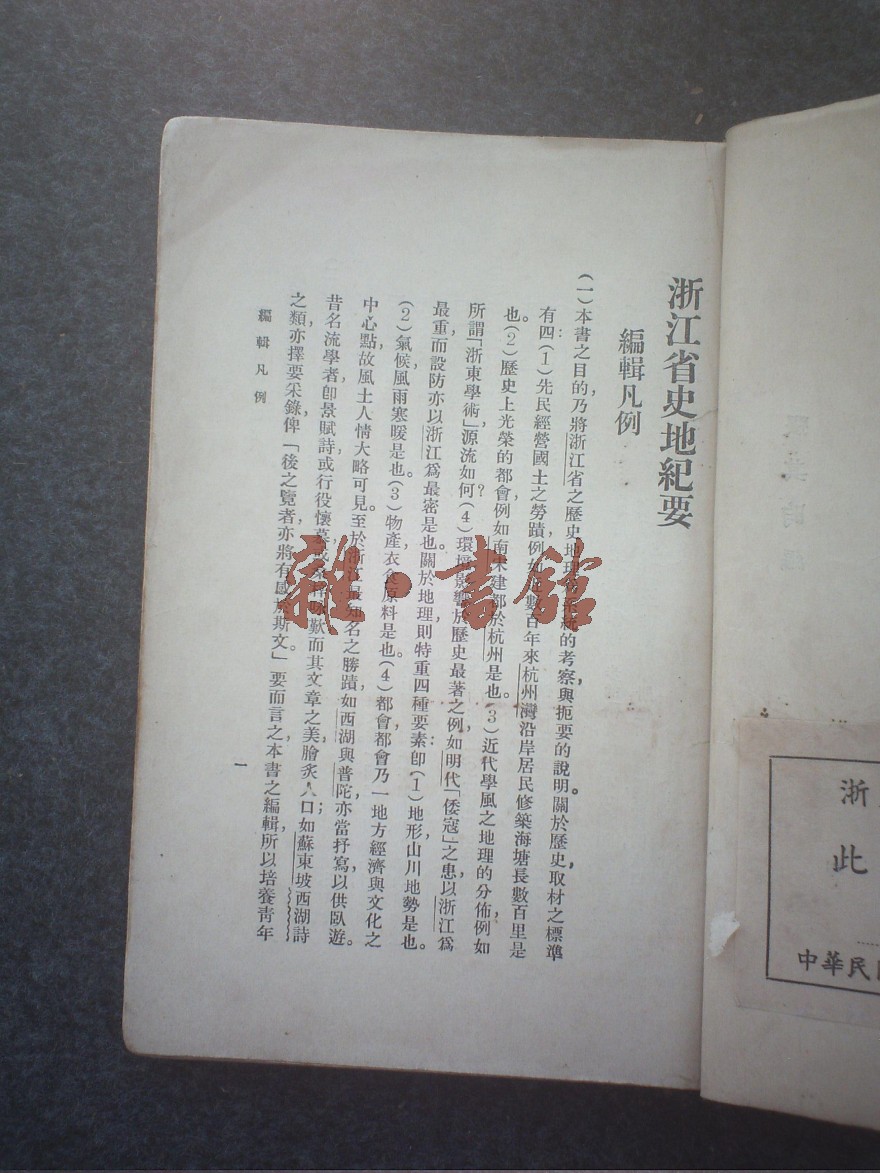 浙江省史地紀要
編輯凡例
（一）本書之目的，乃將浙江省之歷史地理 的考察，與扼要的說明。關於歷史，取材之標準
有四：（1）先民經營國土之勞蹟，例如 數百年來杭州灣沿岸居民修築海塘長數百里是
也。（2）歷史上光榮的都會，例如南宋建都於杭州是也。（3）近代學風之地理的分佈，例如
所謂「浙東學術」源流如何？（4）環境影響於歷史最著之例，如明代「倭寇」之患以浙江爲
最重，而設防亦以浙江爲最密是也。關於地理則特重四種要素：卽（1）地形，山川地勢是也。
（2）氣候，風雨寒暖是也。（3）物產，衣食原料是也。（4）都會，都會乃一地方經濟與文化之
中心點，故風土人情大略可見。至於浙江最知名之勝蹟，如西湖與普陀，亦當抒寫以供臥遊。
昔名流學者，卽景賦詩，或行役懷 歎，而其文章之美，膾炙人口；如蘇東坡西湖詩
之類，亦擇要采錄，俾「後之覽者，亦將有感於斯文」。要而言之，本書之編輯，所以培養靑年
編輯凡例
一
雜·書館
浙
此
中華民